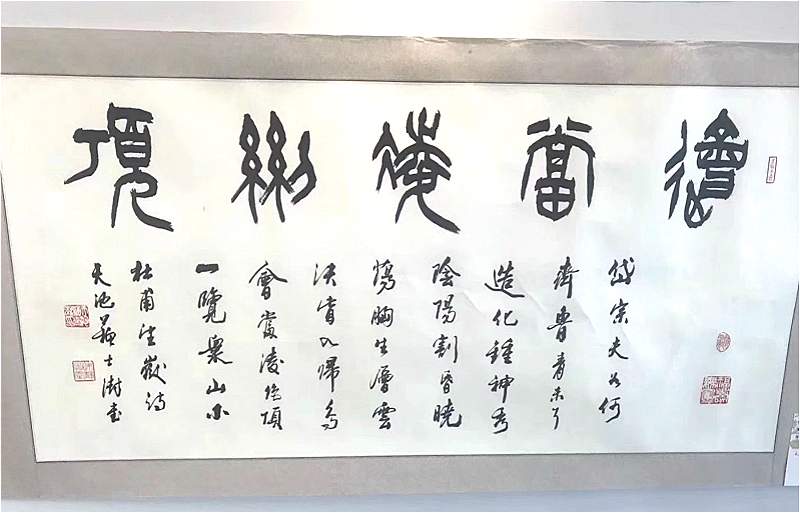 會當凌絕頂
岱宗夫如何
齊魯青未了
造化鍾神秀
陰陽割昏曉
蕩胸生層雲
決眥入歸鳥
會當凌絕頂
一覽衆山小
杜甫望嶽詩
天池蘇士澍書